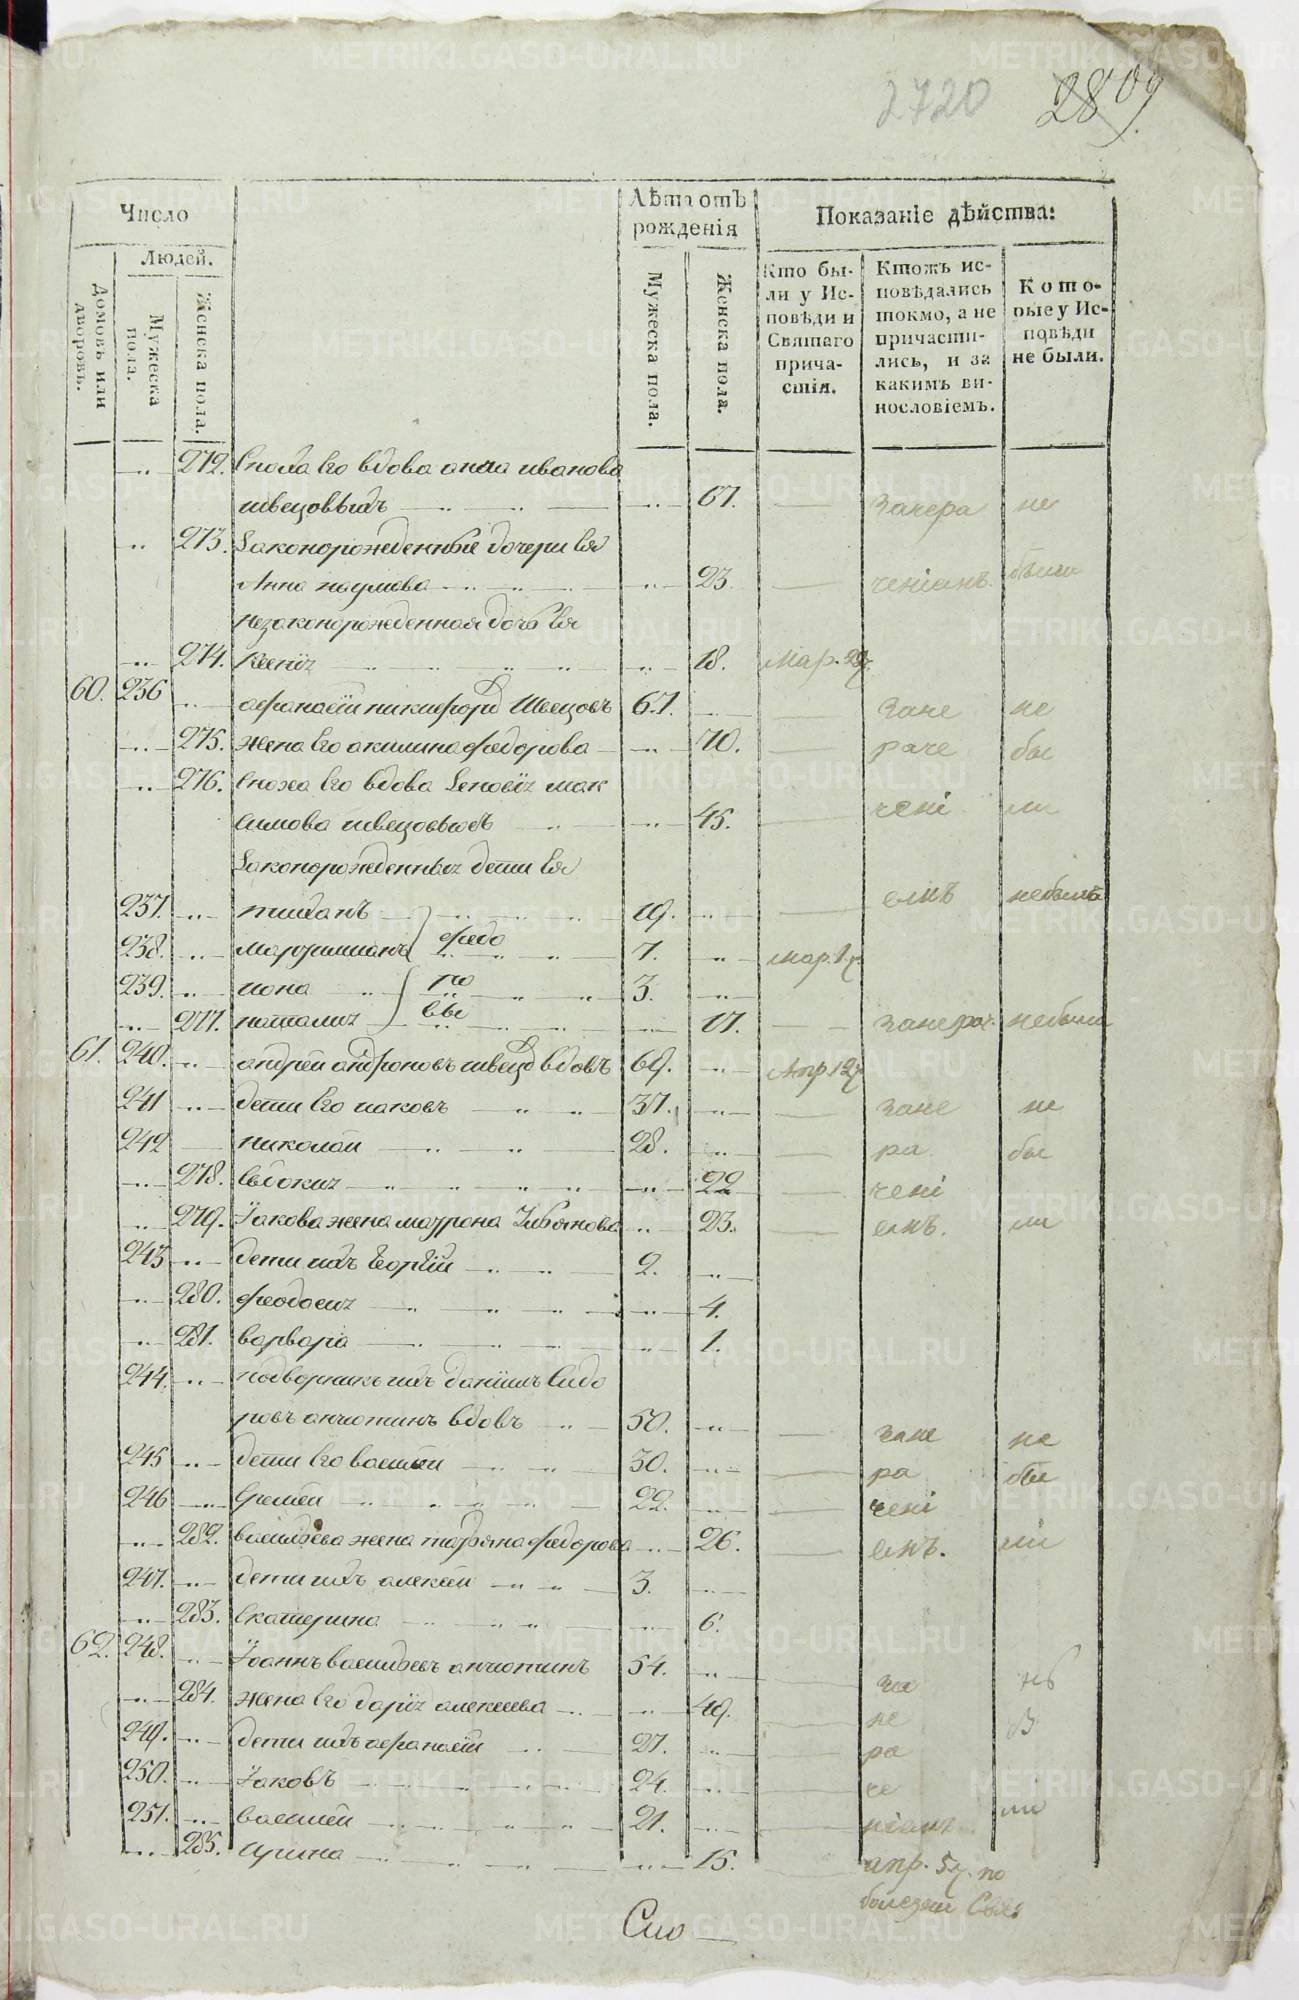 2720 2809.
Число
Людей.
Домовъ или дворовъ.
Мужеска пола.
Женска пола.
Лѣта отъ рожденія
Мужеска пола.
Женска пола.
Показаніе дѣйства:
Кто бы-
ли у Ис-
повѣди и
Святаго
прича-
стія.
Ктожъ ис-
повѣдались
токмо, а не
причасти-
лись, и за
какимъ ви-
нословіемъ.
Кото-
рые у Ис-
повѣди
не были.
272. Сноха его вдова анна иванова
швецовыхъ 67. занера не
273. Законорожденные дочери ея
Анна наумова 23. ченіемъ. были
незаконорожденная дочь ея
274. Ксенія 18. мар.
60. 236 афанасіи никифоровъ Швецовъ 67. зане не
275. жена его акилина федорова 70. раче бы
276. сноха его вдова Зеновія мак
симова швецовыхъ 45. чені ли
Законорожденныя дети ея
237. 19. емъ небылъ
238. федо 7. мар. 1.
239. иона ро 3.
277. наталія вы 17. занерач. небыла
61. 240. андрей андроновъ швецовъ вдовъ 69. Апр. 12
241 дети его иаковъ 37. зане не
242 николай 28. ра бы
278. евдокия 22 чені
279. Іакова жена мавра 23. емъ. ли
243 дети ихъ Георгій 2.
280. феодосия 4.
281. варвара 1.
244. подворникъ ихъ даніилъ сидо
ровъ анчютинъ вдовъ 50. зане не
245 дети его василіи 30. ра бы
246 Еремей 22. чені
282. васильева жена татьяна федорова 26. емъ. ли
247. дети ихъ алексей 3.
283. екатерина 6.
62. 248. Іоаннъ васильевъ анчютинъ 54. за нѣ
284. жена его дарія алексеева 49. не
249. дети ихъ афанасіи 27. ра
250. Іаковъ 24. че
251. василей 21. ніемъ ли
285. ирина 15. апр. 5 по
болезни
Сно